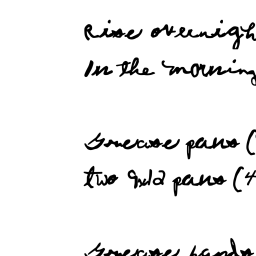 Rise overnigh
In the morning
Grease pans (
two 9x12 pans (4
Grease hands